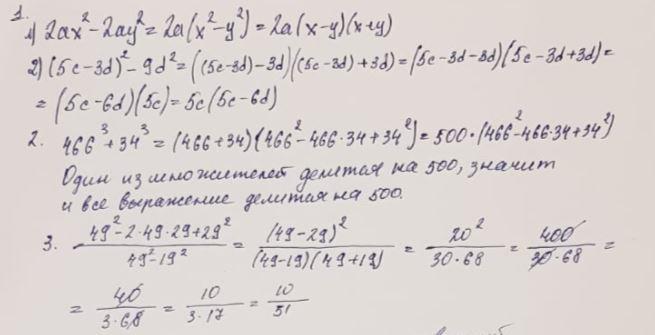 1.
1) 2ax² - 2ay² = 2a(x² - y²) = 2a(x-y)(x+y)
2) (5c-3d)² - 9d² = ((5c-3d)-3d)((5c-3d)+3d) = (5c-3d-3d)(5c-3d+3d) =
= (5c-6d)(5c) = 5c(5c-6d)
2. 466³ + 34³ = (466+34)(466² - 466·34 + 34²) = 500·(466² - 466·34 + 34²)
Один из множителей делится на 500, значит
и все выражение делится на 500.
3. (49² - 2·49·29 + 29²)/(49² - 19²) = (49-29)²/((49-19)(49+19)) = 20²/(30·68) = 400/(30·68) =
= 40/(3·68) = 10/(3·17) = 10/51